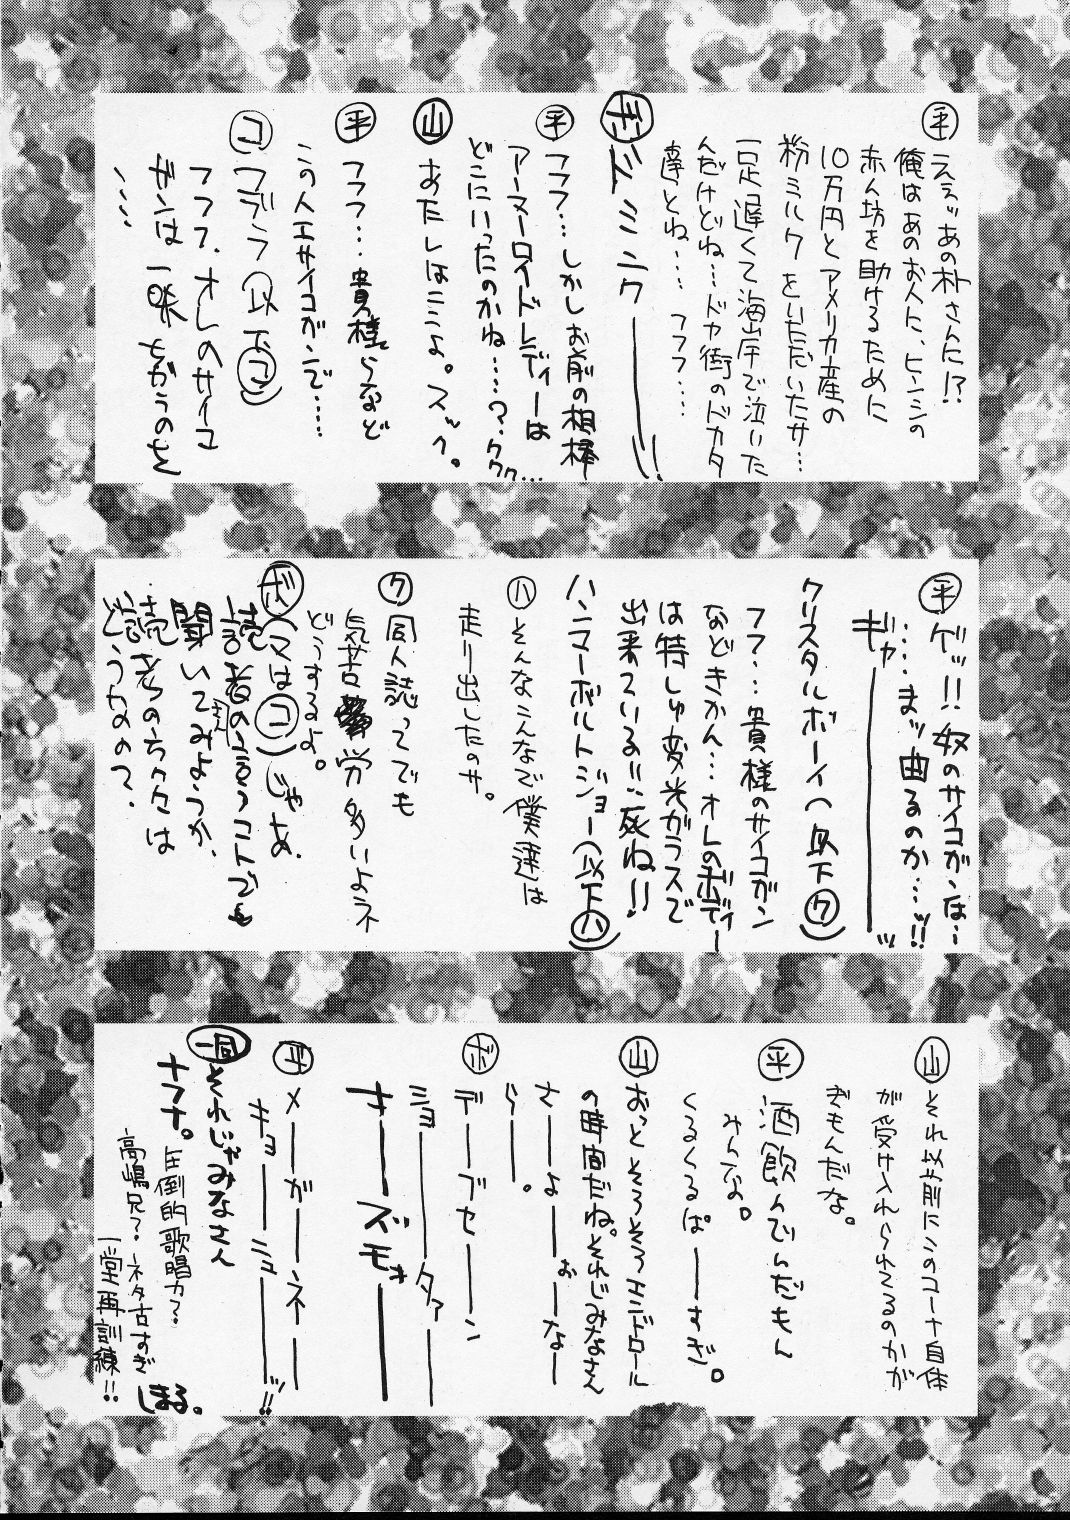 平 えぇッあの朴さんに!?
俺はあのお人に、ヒンシの
赤ん坊を助けるために
10万円とアメリカ産の
粉ミルクをいただいたサ…
一足遅くて海岸で泣いた
んだけどね…ドヤ街のドカタ
達とね…フフフ…
ボ ドミニク――!!
平 フフフ…しかしお前の相棒
アーマーロイドレディーは
どこにいったのかね…?ククク…
山 あたしはここよ。ズべ。
平 フフフ…貴様らなど
この人エサイコガンで……
コ コブラ(以下コ)
フフフ.オレのサイコ
ガンは一味ちがうのさ
、、、、
平 ゲッ!!奴のサイコガンは…
……まッ曲るのか…ッ!!
ギャ――ッ
クリスタルボーイ(以下ク)
フフ…貴様のサイコガン
などきかん…オレのボディー
は特しゅ変光ガラスで
出来ている!!死ね!!
ハンマーボルトジョー(以下ハ)
ハ そんなこんなで僕達は
走り出したのサ。
ク 同人誌ってでも
気苦労多いよネ
どうするよ。
ボ(マはコ)じゃあ.
読者の言うコトでも
聞いてみようか、
読者の方々は
どうなの?.
山 それ以前にこのコーナ自体
が受け入れられてるのかが
ぎもんだな。
平 酒飲んでんだもん
みんな。
くるくるぱーすぎ。
山 おっとそろそろエンドロール
の時間だね。それじみなさん
さーよーおーなー
らー。
ボ デーブセーン
ショーターー
オーズモォー
平 メーガーネー
キョーニューッ!!
一同 それじゃみなさん
ナフナ。
圧倒的歌唱力?
高嶋兄?ネタ古すぎ
一堂再訓練!!
しまる。